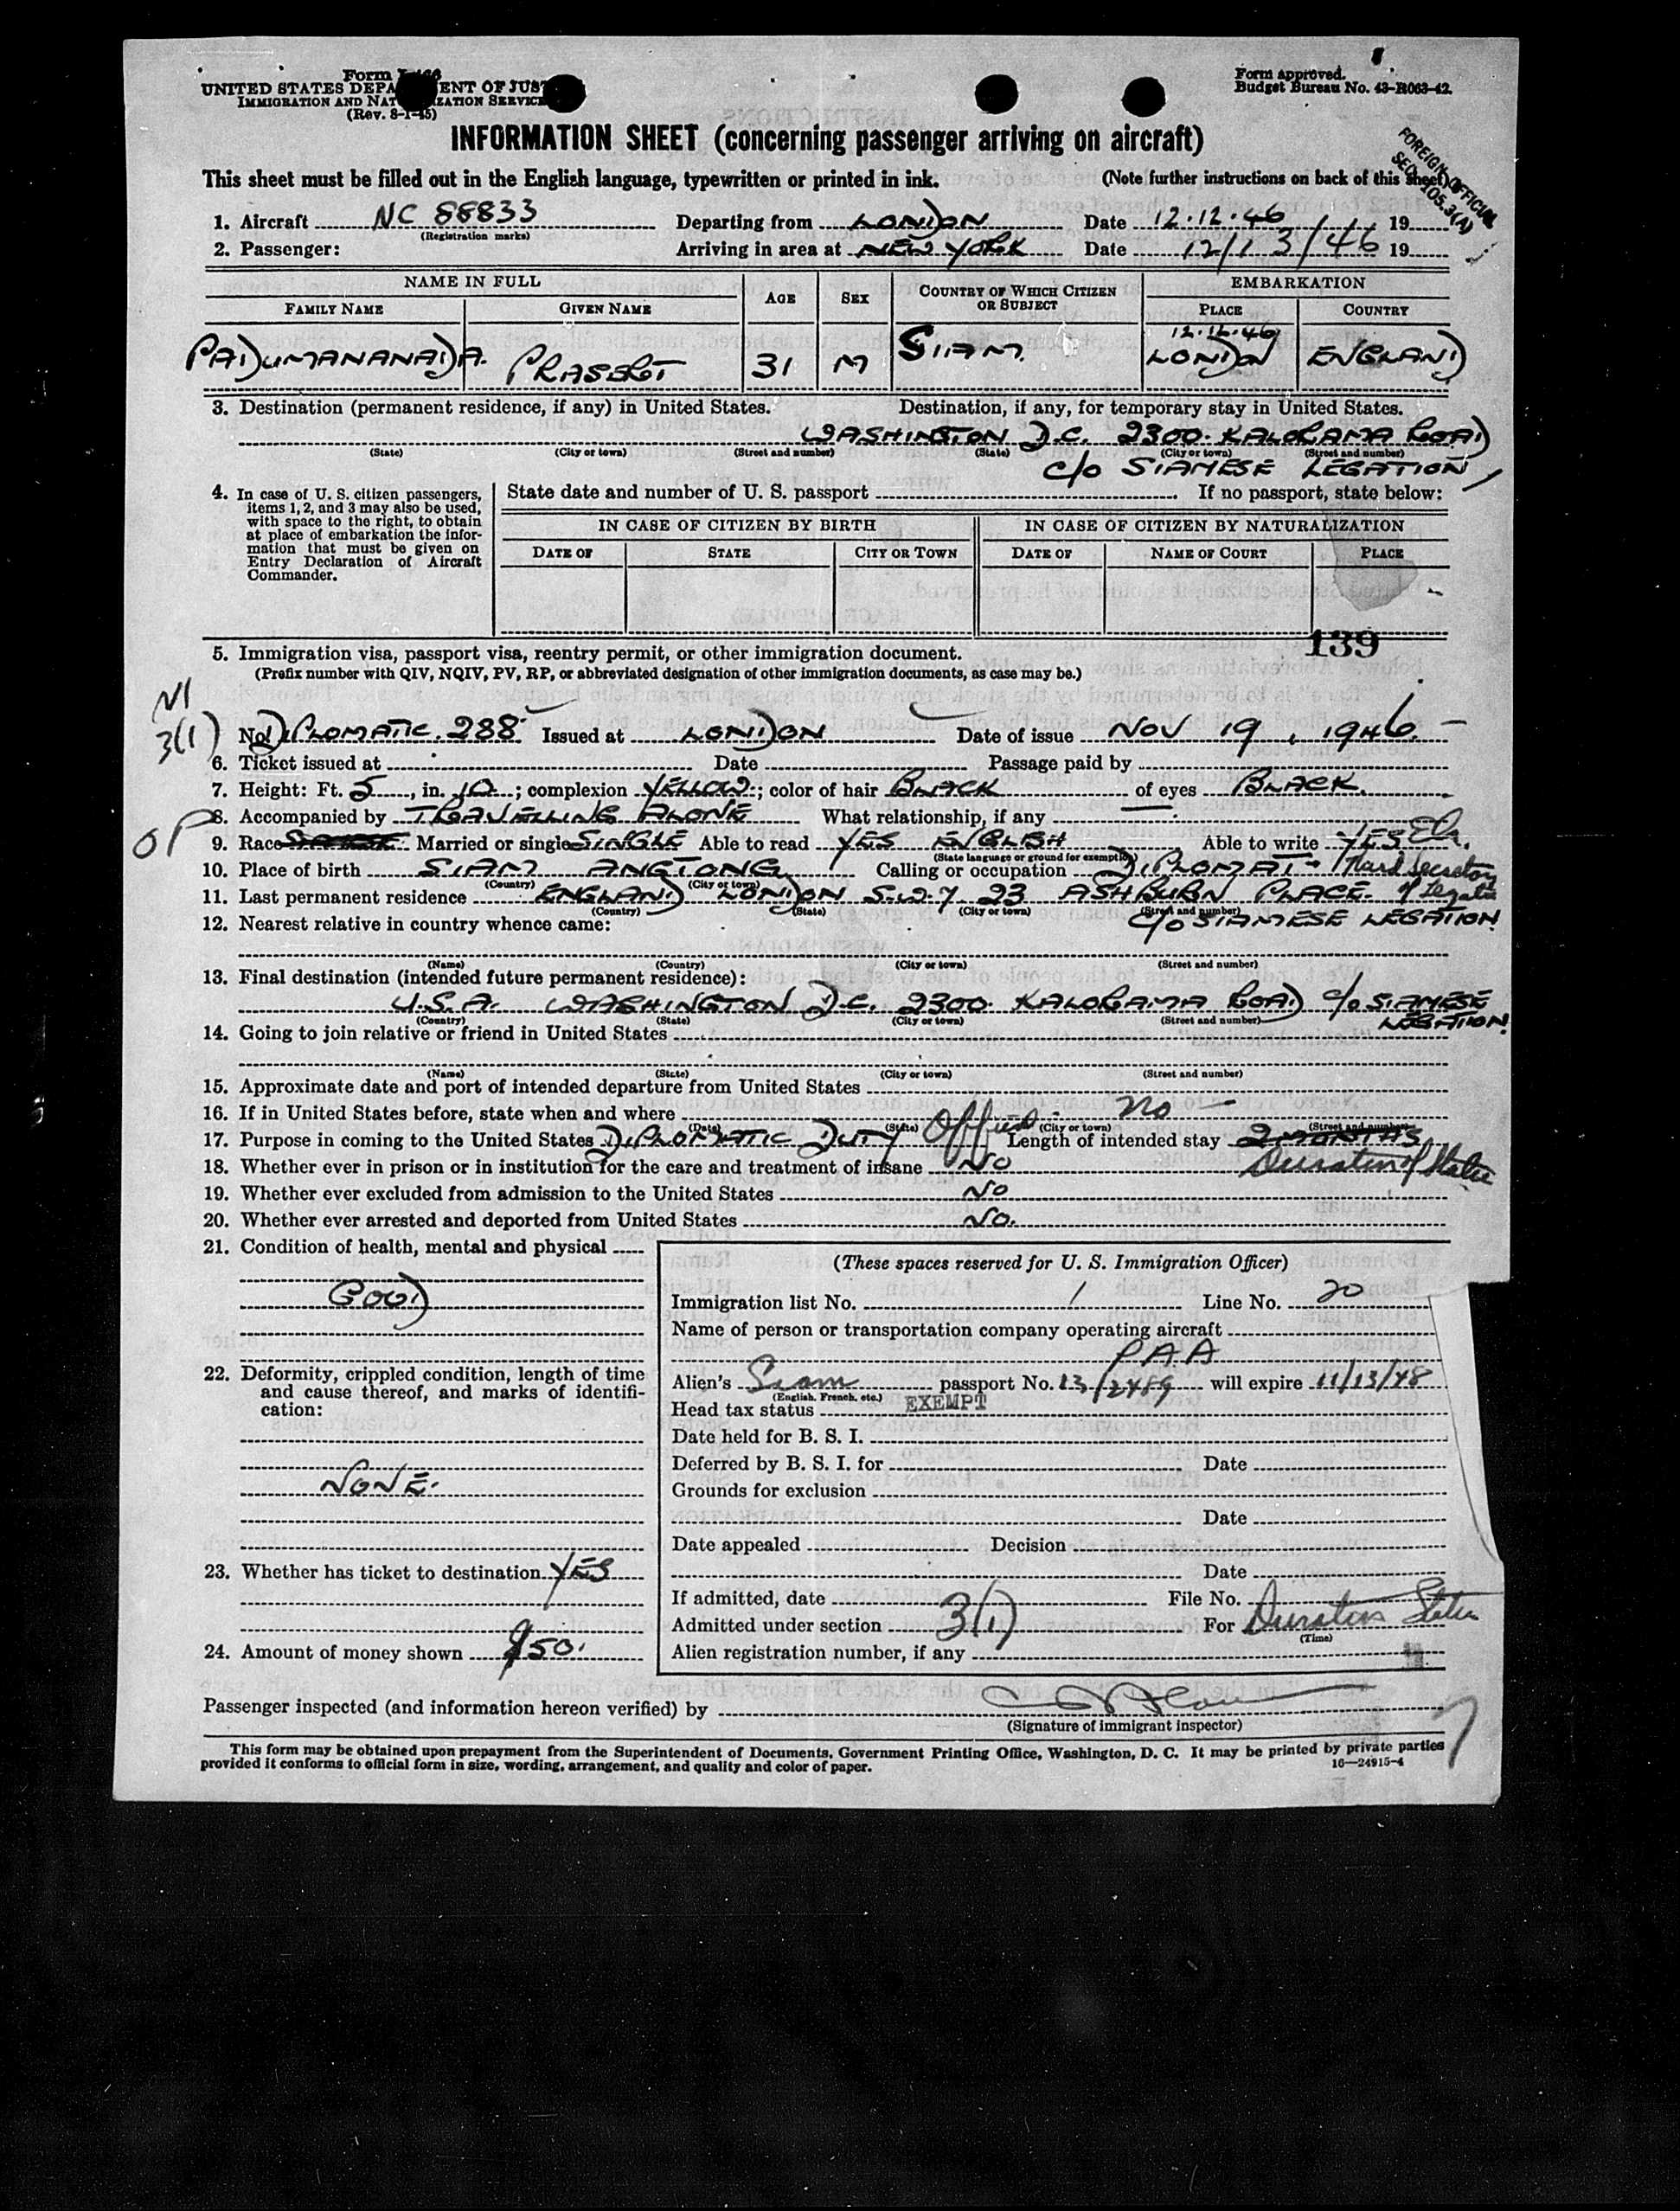 Form I-466
UNITED STATES DEPARTMENT OF JUSTICE
IMMIGRATION AND NATURALIZATION SERVICE
(Rev. 8-1-45)
Form approved.
Budget Bureau No. 43-R063-42.
INFORMATION SHEET (concerning passenger arriving on aircraft)
FOREIGN OFFICIAL
SEC. 105.3(A)
This sheet must be filled out in the English language, typewritten or printed in ink. (Note further instructions on back of this sheet)
1. Aircraft NC 88833 Departing from LONDON Date 12.12.46 19
(Registration marks)
2. Passenger: Arriving in area at NEW YORK Date 12/13/46 19
NAME IN FULL AGE SEX COUNTRY OF WHICH CITIZEN OR SUBJECT EMBARKATION
FAMILY NAME GIVEN NAME PLACE COUNTRY
12.12.46
PADUMANANADA. PRASERT 31 M SIAM. LONDON ENGLAND
3. Destination (permanent residence, if any) in United States. Destination, if any, for temporary stay in United States.
WASHINGTON D.C. 2300. KALORAMA ROAD
(State) (City or town) (Street and number) (State) (City or town) (Street and number)
c/o SIAMESE LEGATION
4. In case of U. S. citizen passengers, items 1, 2, and 3 may also be used, with space to the right, to obtain at place of embarkation the information that must be given on Entry Declaration of Aircraft Commander.
State date and number of U. S. passport If no passport, state below:
IN CASE OF CITIZEN BY BIRTH IN CASE OF CITIZEN BY NATURALIZATION
DATE OF STATE CITY OR TOWN DATE OF NAME OF COURT PLACE
139
5. Immigration visa, passport visa, reentry permit, or other immigration document.
(Prefix number with QIV, NQIV, PV, RP, or abbreviated designation of other immigration documents, as case may be.)
NI
3(1)
No. DIPLOMATIC. 288 Issued at LONDON Date of issue NOV 19, 1946
6. Ticket issued at Date Passage paid by
7. Height: Ft. 5, in. 10; complexion YELLOW; color of hair BLACK of eyes BLACK.
OP
8. Accompanied by TRAVELLING ALONE What relationship, if any
9. Race Married or single SINGLE Able to read YES ENGLISH Able to write YES
(State language or ground for exemption)
10. Place of birth SIAM ANGTONG Calling or occupation DIPLOMAT - Third Secretary of Legation
(Country) (City or town)
11. Last permanent residence ENGLAND LONDON S.W.7 23 ASHBURN PLACE.
(Country) (State) (City or town) (Street and number)
c/o SIAMESE LEGATION.
12. Nearest relative in country whence came:
(Name) (Country) (City or town) (Street and number)
13. Final destination (intended future permanent residence):
U.S.A. WASHINGTON D.C. 2300. KALORAMA ROAD c/o SIAMESE LEGATION.
(Country) (State) (City or town) (Street and number)
14. Going to join relative or friend in United States
(Name) (State) (City or town) (Street and number)
15. Approximate date and port of intended departure from United States
16. If in United States before, state when and where No
(Date) (State) (City or town) (Street and number)
17. Purpose in coming to the United States DIPLOMATIC DUTY Official Length of intended stay 2 MONTHS
Duration of Status
18. Whether ever in prison or in institution for the care and treatment of insane NO
19. Whether ever excluded from admission to the United States NO
20. Whether ever arrested and deported from United States NO.
21. Condition of health, mental and physical
GOOD
22. Deformity, crippled condition, length of time and cause thereof, and marks of identification:
NONE.
23. Whether has ticket to destination YES
24. Amount of money shown $50.
(These spaces reserved for U. S. Immigration Officer)
Immigration list No. 1 Line No. 20
Name of person or transportation company operating aircraft
PAA
Alien's Siam passport No. 13/2489 will expire 11/13/48
(English, French, etc.)
Head tax status EXEMPT
Date held for B. S. I.
Deferred by B. S. I. for Date
Grounds for exclusion
Date
Date appealed Decision
Date
If admitted, date File No.
Admitted under section 3(1) For Duration Status
(Time)
Alien registration number, if any
Passenger inspected (and information hereon verified) by
(Signature of immigrant inspector)
This form may be obtained upon prepayment from the Superintendent of Documents, Government Printing Office, Washington, D. C. It may be printed by private parties
provided it conforms to official form in size, wording, arrangement, and quality and color of paper. 16—24915-4